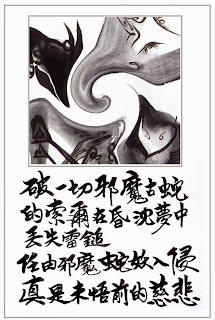 破一切邪魔古蛇
的索爾在昏沈夢中
丟失雷鎚
任由邪魔蛇妖入侵
真是未悟前的慈悲